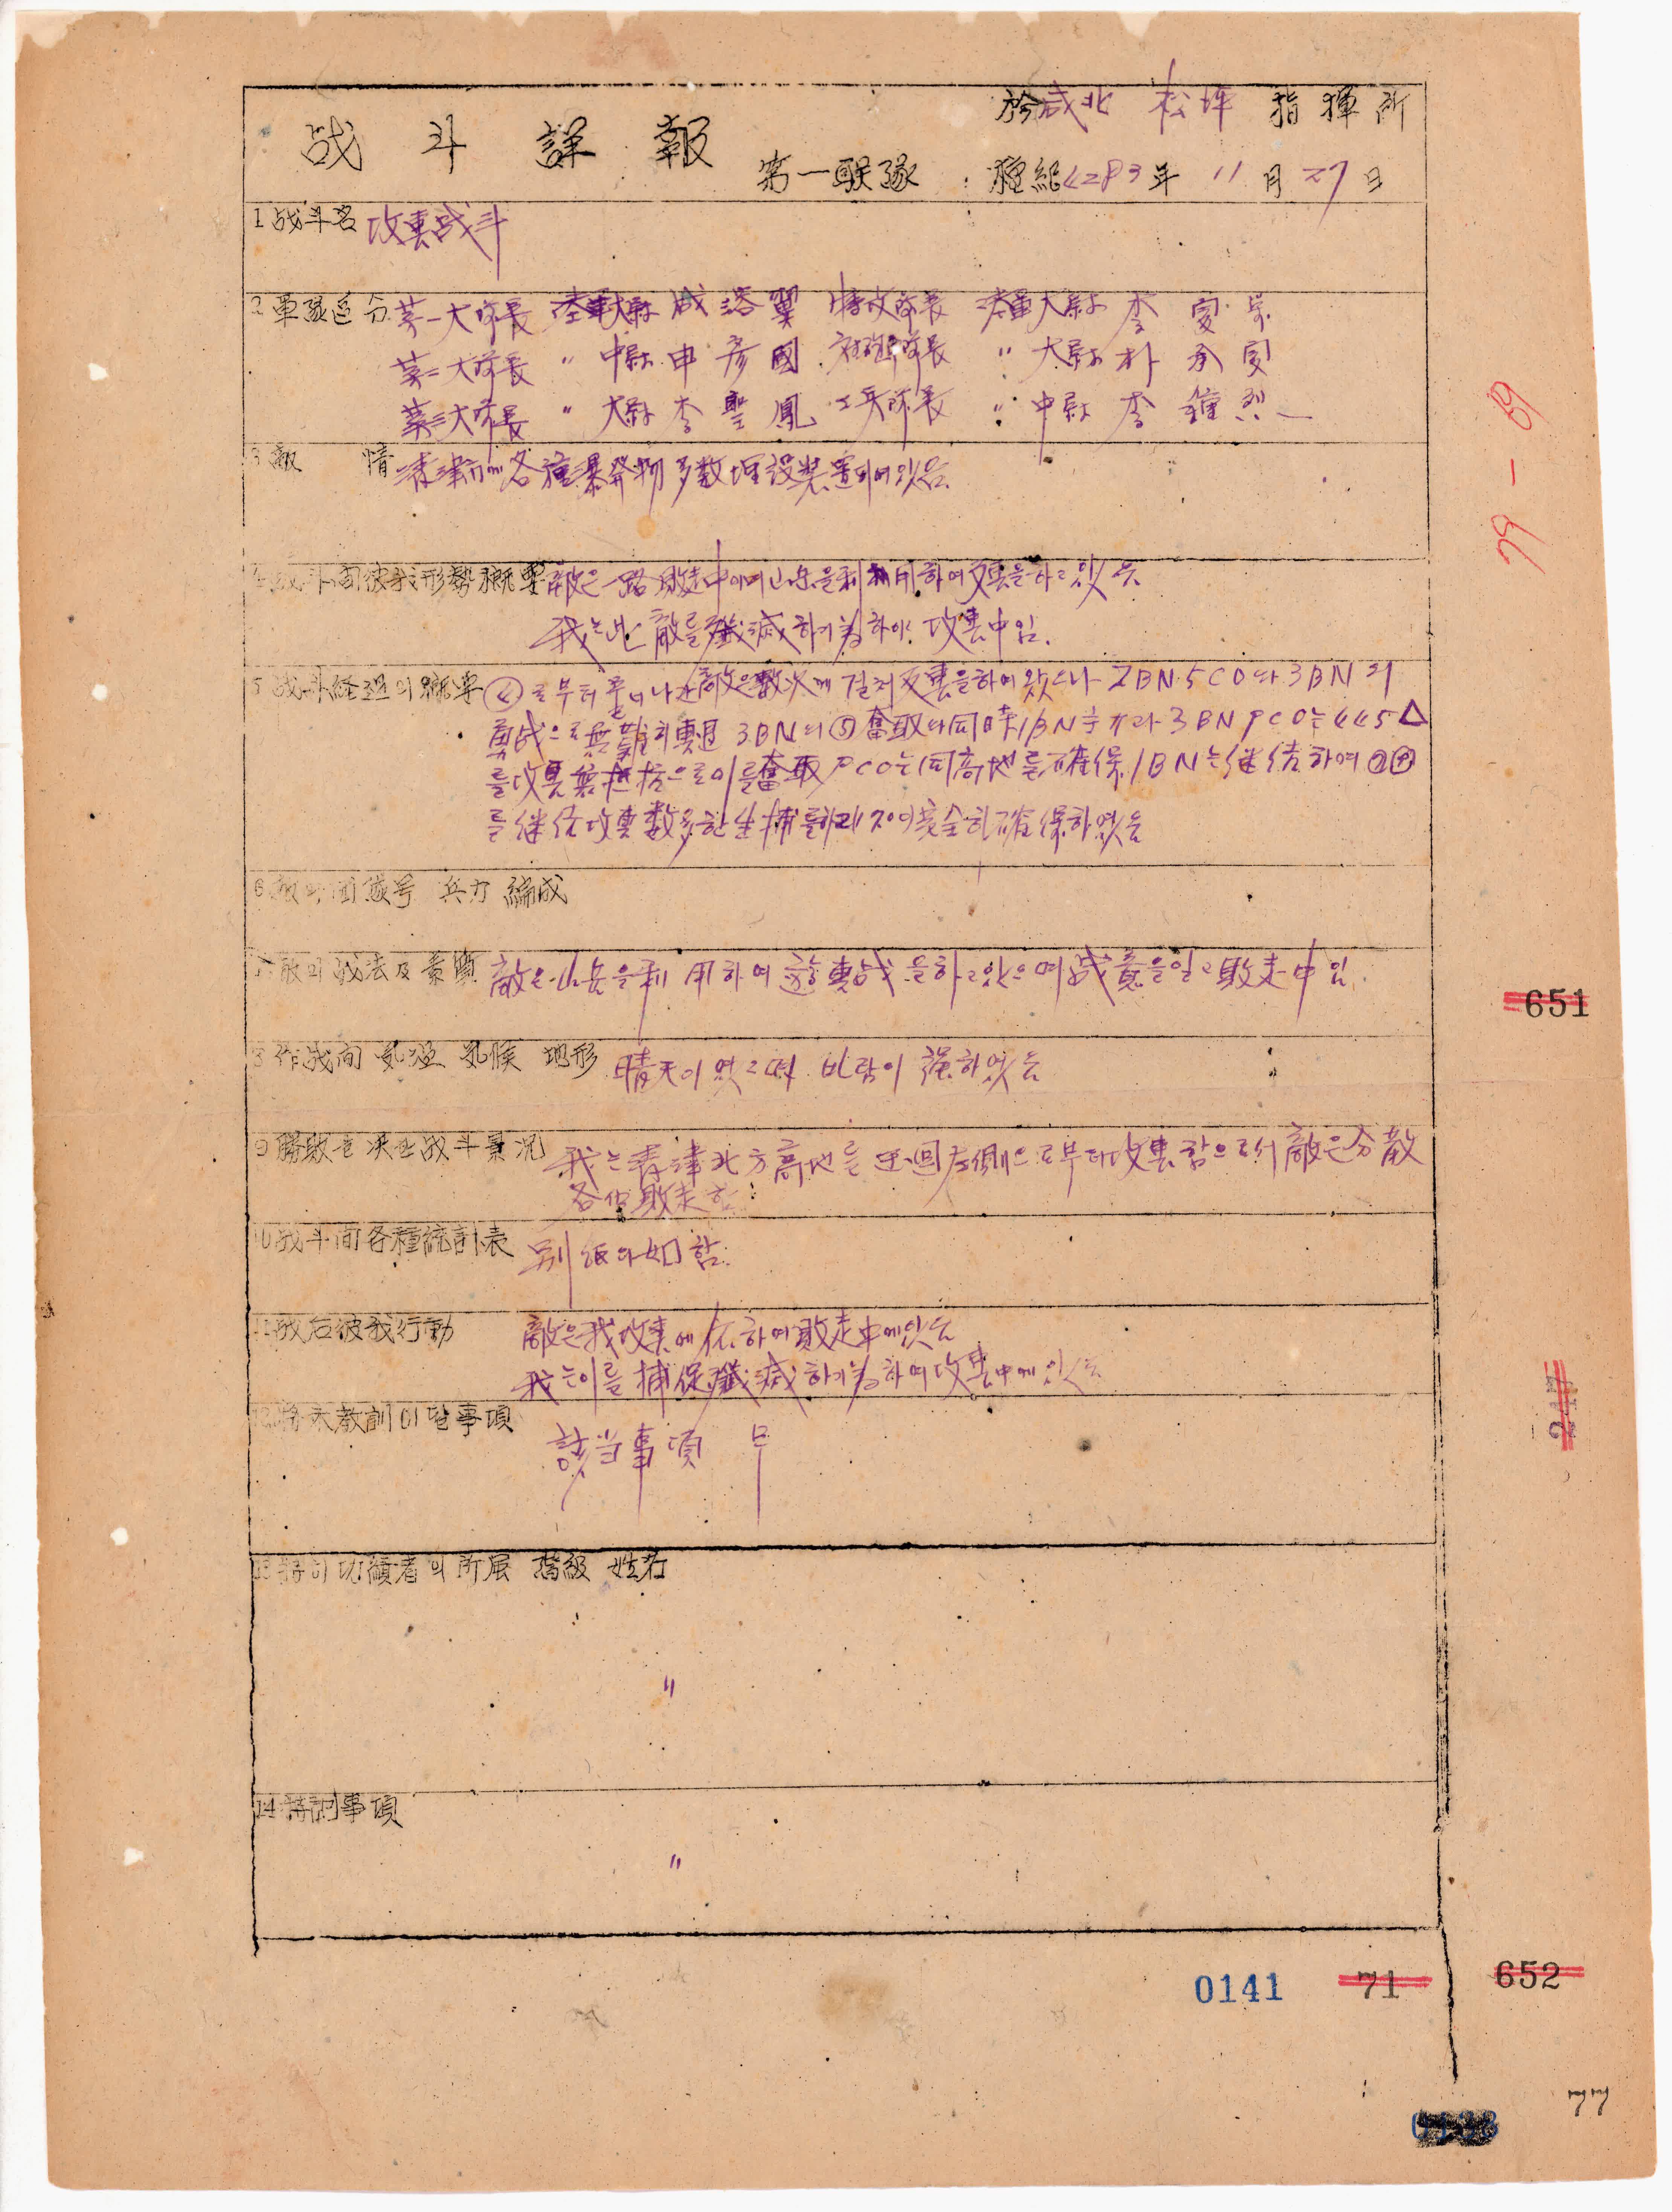 於咸北 松坪 指揮所
战斗詳報
第一联隊 檀紀4283年 11月 27日
1 战斗名 攻擊战斗
2 軍隊区分 第一大隊長 陸軍大尉 成 洛 翼 特攻隊長 陸軍大尉 李
第二大隊長 〃 中尉 申 彦 國 〃 大尉 朴 承
第三大隊長 〃 大尉 李 聖 鳳 工兵隊長 〃 中尉 李 鍾 烈
3 敵 情 淸津市에 各種爆発物 多数埋設裝置되여있음
4 战斗间彼我形勢概要 敵은 一路 敗走中이며 山岳을 利用하여 反擊을 하고 있음
我는 此 敵를 殲滅하기 為하야 攻擊中임.
5 战斗経過의 概要 ④로부터 敵은 数次에 걸처 反擊을 하여 왔으나 2BN 5CO와 3BN의
勇战으로 無難히 擊退 3BN의 ⑤ 奮取와 同時 1BN 3BN PCO는 445△
를 攻擊 無抵抗으로 이를 奮取 PCO는 同高地를 確保 1BN는 継続하여
를 継続 攻擊 数多한 生捕를 하고 完全히 確保하였음
6 敵의 团隊号 兵力 編成
7 敵의 战法及素質 敵은 山岳을 利用하여 遊擊战을 하고 있으며 战意을 잃고 敗走中임.
8 作战间 気温 気候 地形 晴天이였으며 바람이 强하였음
9 勝敗를 決한 战斗景况 我는 青津北方高地를 迂回左側으로부터 攻擊함으로서 敵은 分散
各個敗走함
10 战斗间各種統計表 別紙와 如함.
11 战后彼我行動 敵은 我攻擊에 依하여 敗走中에 있음
我는 이를 捕促殲滅하기 為하여 攻擊中에 있음
12 將来教訓이 될 事項 該当事項 무
13 特히 功績者의 所属 階級 姓名
〃
14 特記事項
〃
651
0141 71 652
77